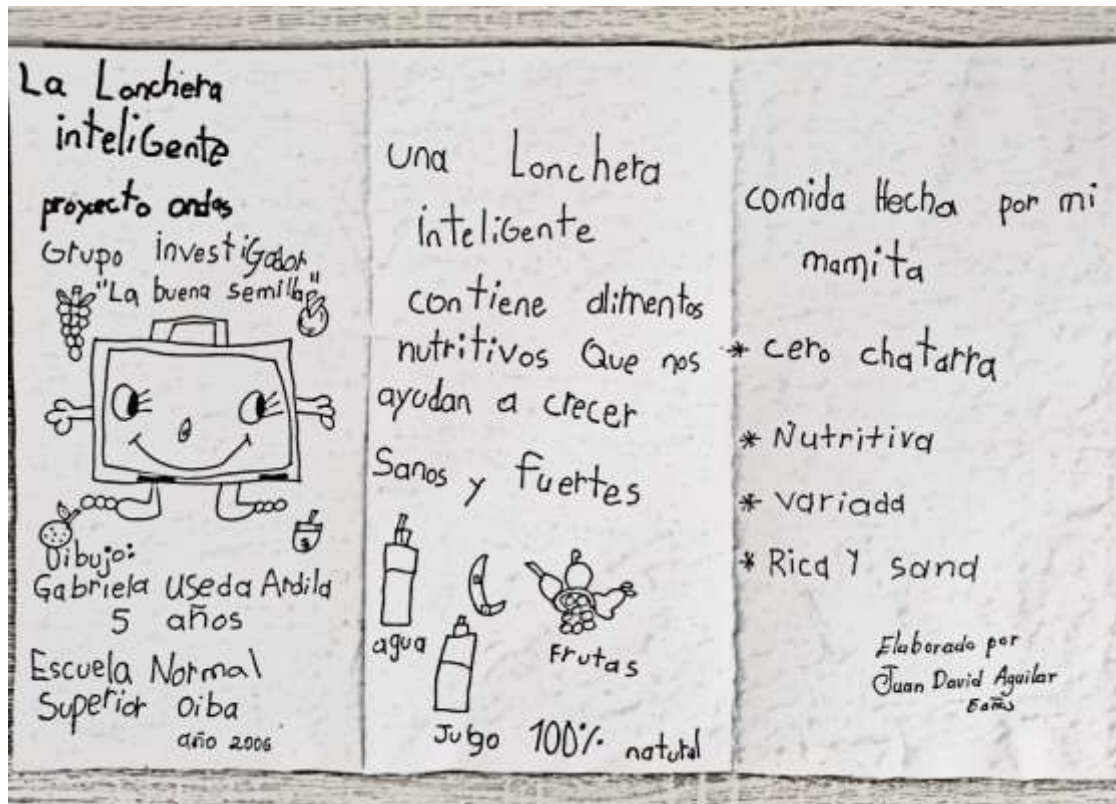 La Lonchera
inteliGente
proyecto ondas
Grupo investiGador
"La buena semilla"
Dibujo:
Gabriela Useda Ardila
5 años
Escuela Normal
Superior Oiba
año 2006
una Lonchera
inteliGente
contiene alimentos
nutritivos Que nos
ayudan a crecer
Sanos y fuertes
agua
Frutas
Jugo 100% natural
comida Hecha por mi
mamita
* cero chatarra
* Nutritiva
* variada
* Rica Y sana
Elaborado por
Juan David Aguilar
años